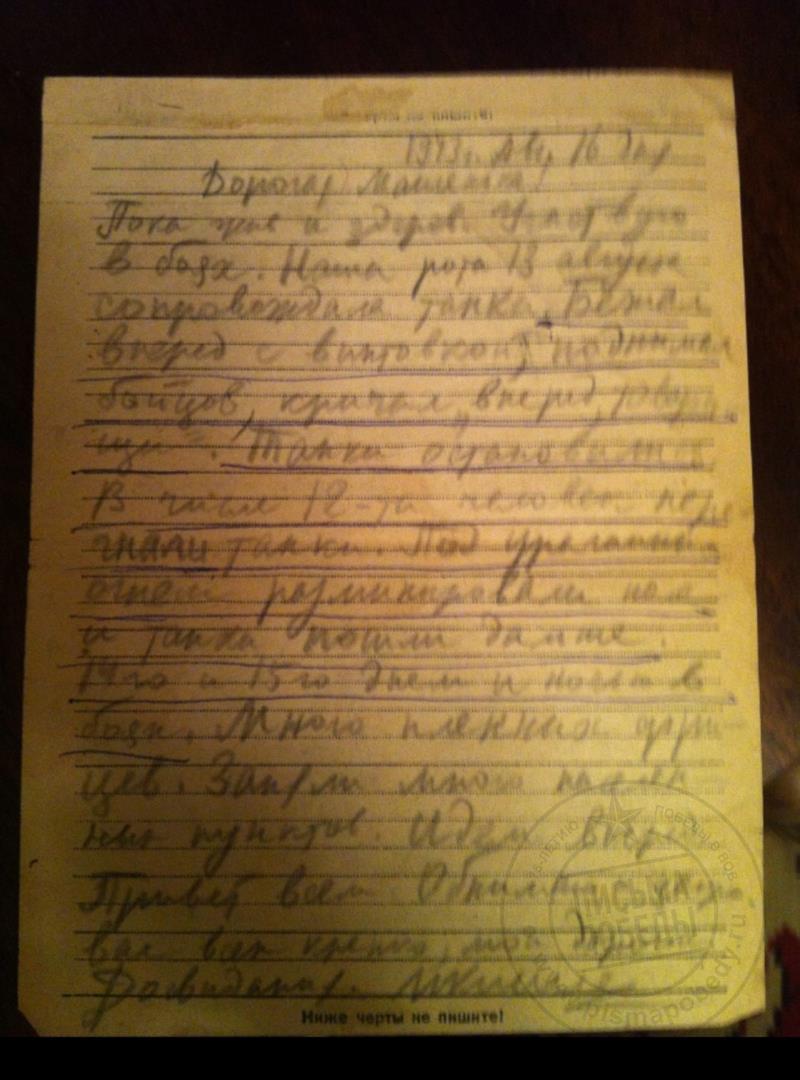 черты не пишите!
1943 г. Авг. 16 дня
Дорогая Машенька!
Пока жив и здоров. Участвую
в боях. Наша рота 13 августа
сопровождала танки. Бежал
вперед с винтовкой, поднимал
бойцов, кричал „вперед, товари-
щи". Танки остановились.
В числе 12-ти человек пере-
гнали танки. Под ураганным
огнем разминировали поле
и танки пошли дальше.
14го и 15го днем и ночью в
боях. Много пленных фри-
цев. Заняли много населен
ных пунктов. Идем вперед
Привет всем. Обнимаю, целую
вас всех крепко, мои
Досвидания.
Ниже черты не пишите!
ЛЕТИЮ ПОБЕДЫ В ВОВ
ПИСЬМА ПОБЕДЫ
pismapobedy.ru